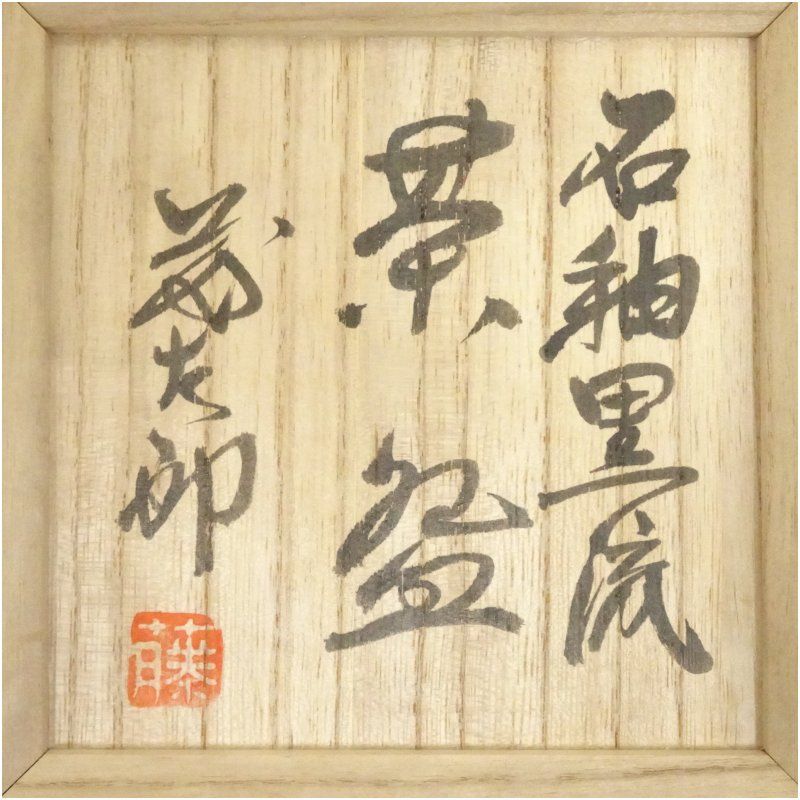 石釉黒流
茶盌
茂太郎
藤